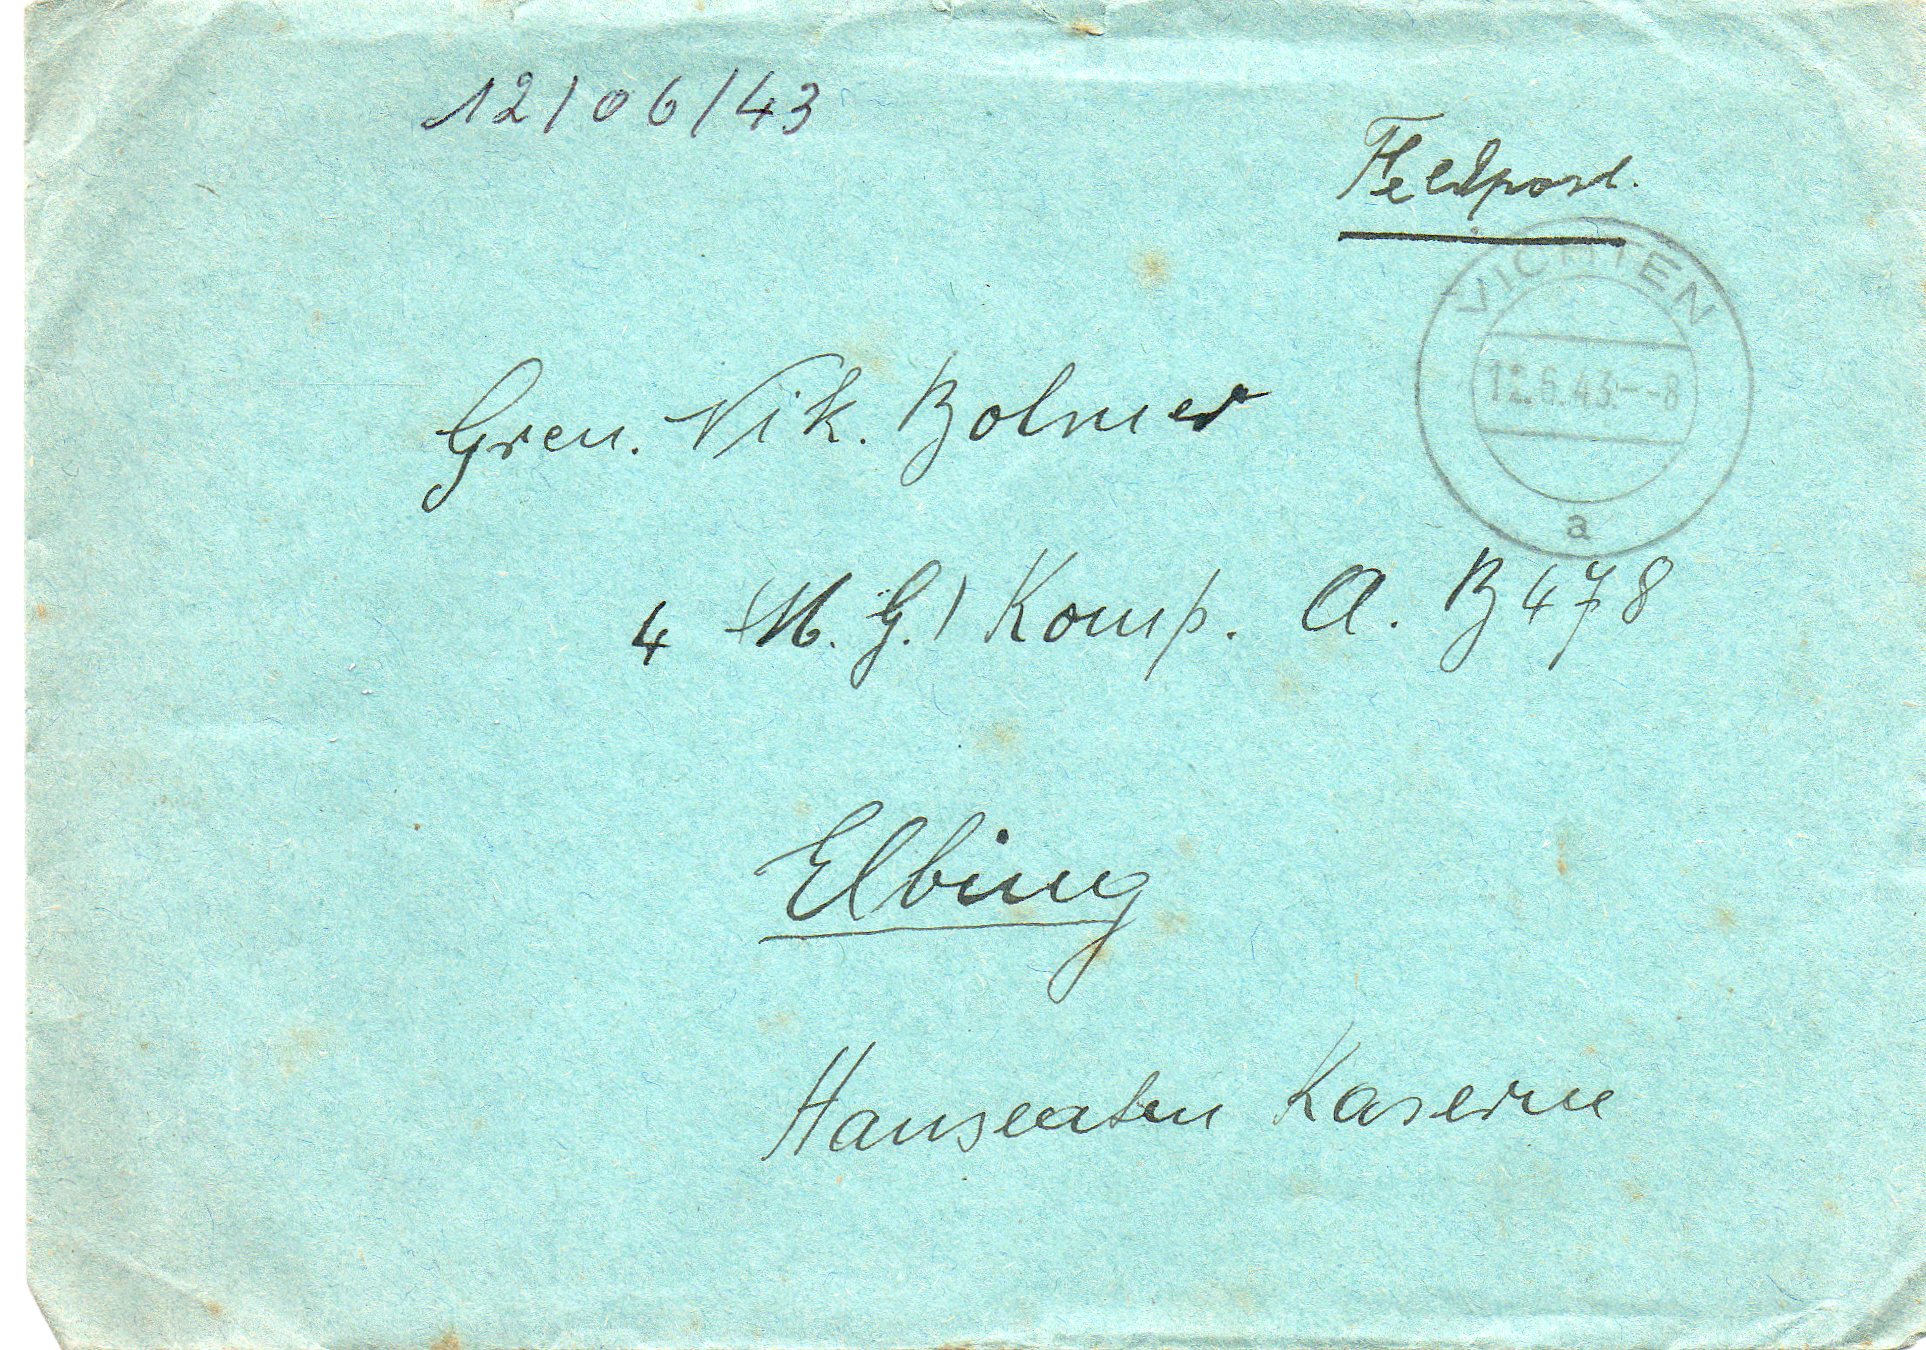 12/06/43
Feldpost.
VICHTEN
12.6.43.--8
a
Gren. Nik. Bolmer
4 (M.G.) Komp. A. B 478
Elbing
Hanseaten Kaserne